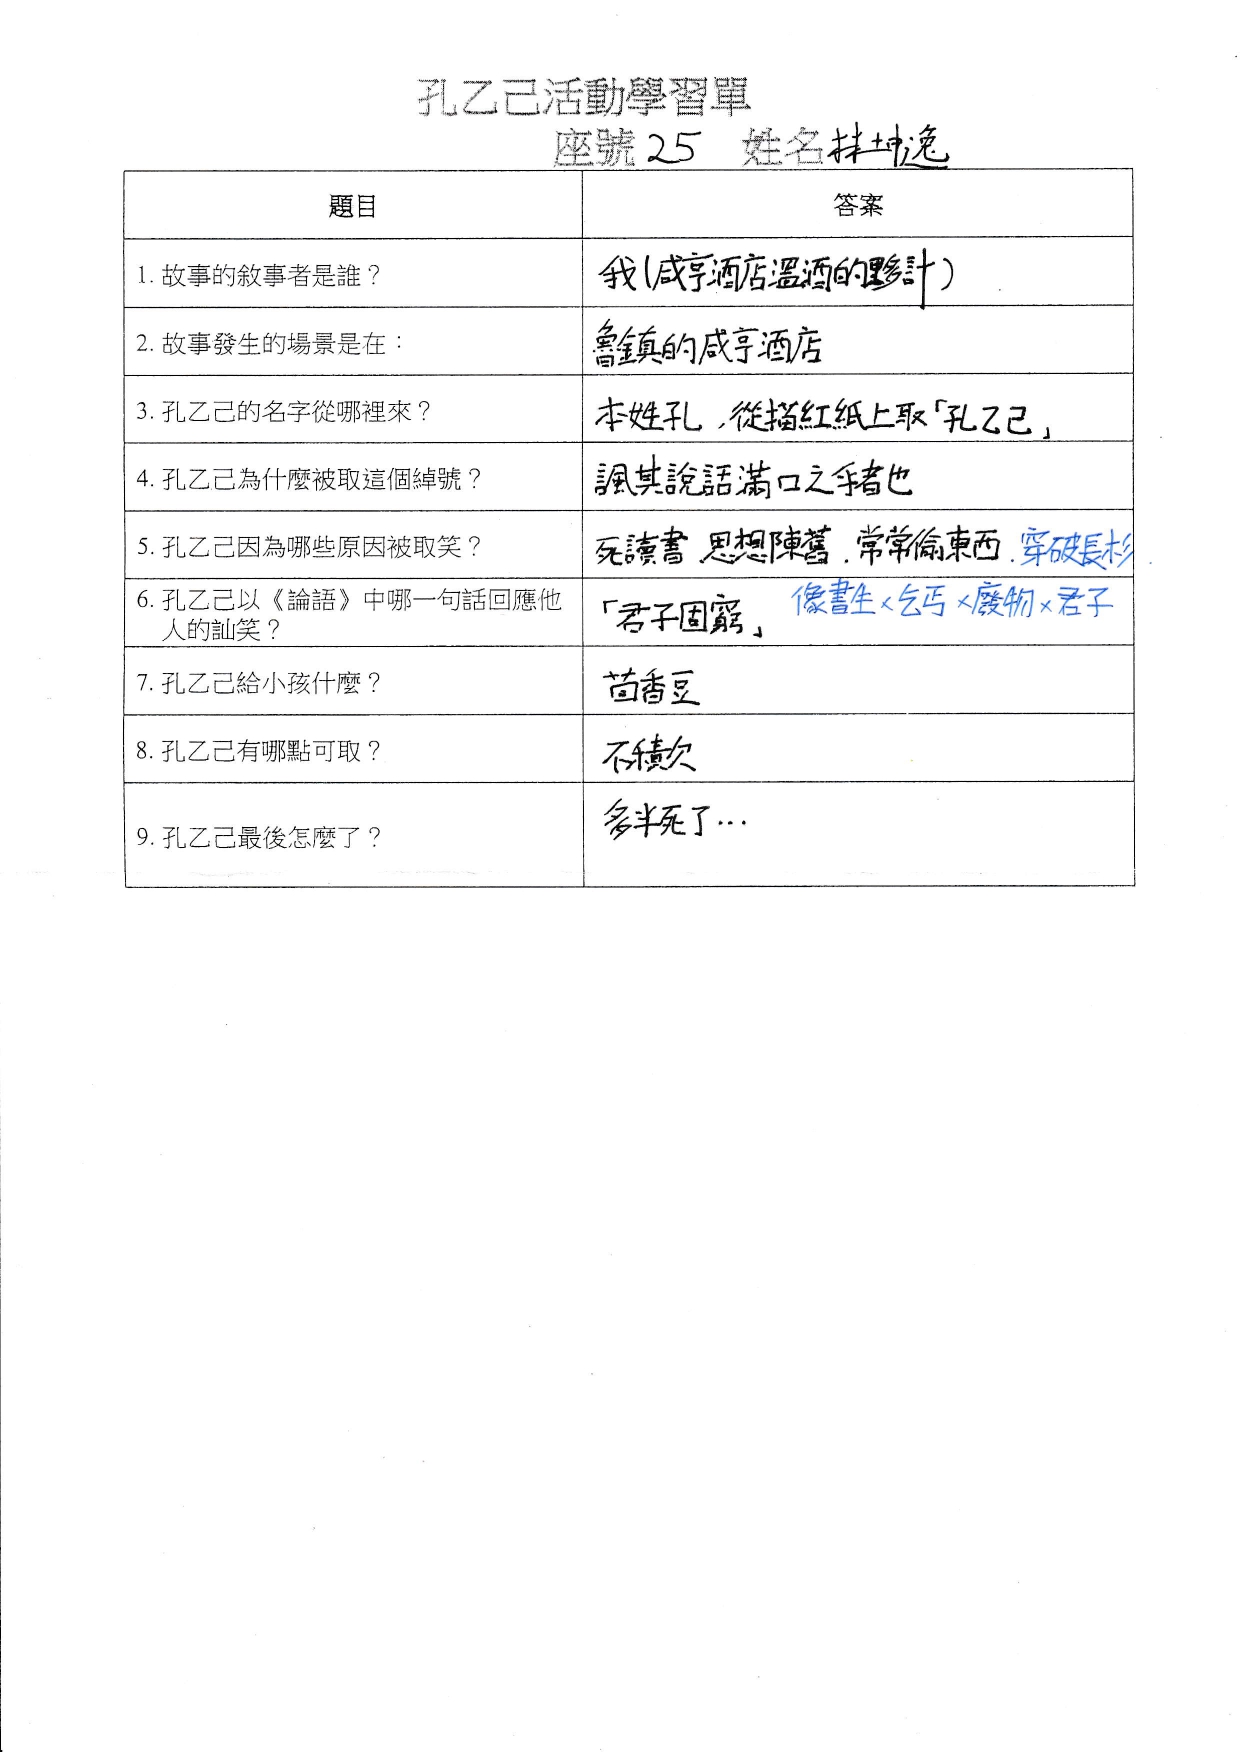 孔乙己活動學習單
座號 25 姓名 林坤逸
題目 答案
1. 故事的敘事者是誰？ 我(咸亨酒店溫酒的夥計)
2. 故事發生的場景是在： 魯鎮的咸亨酒店
3. 孔乙己的名字從哪裡來？ 本姓孔，從描紅紙上取「孔乙己」
4. 孔乙己為什麼被取這個綽號？ 諷其說話滿口之乎者也
5. 孔乙己因為哪些原因被取笑？ 死讀書、思想陳舊、常常偷東西、穿破長衫
6. 孔乙己以《論語》中哪一句話回應他 「君子固窮」 像書生×乞丐×廢物×君子
人的訕笑？
7. 孔乙己給小孩什麼？ 茴香豆
8. 孔乙己有哪點可取？ 不積欠
9. 孔乙己最後怎麼了？ 多半死了…